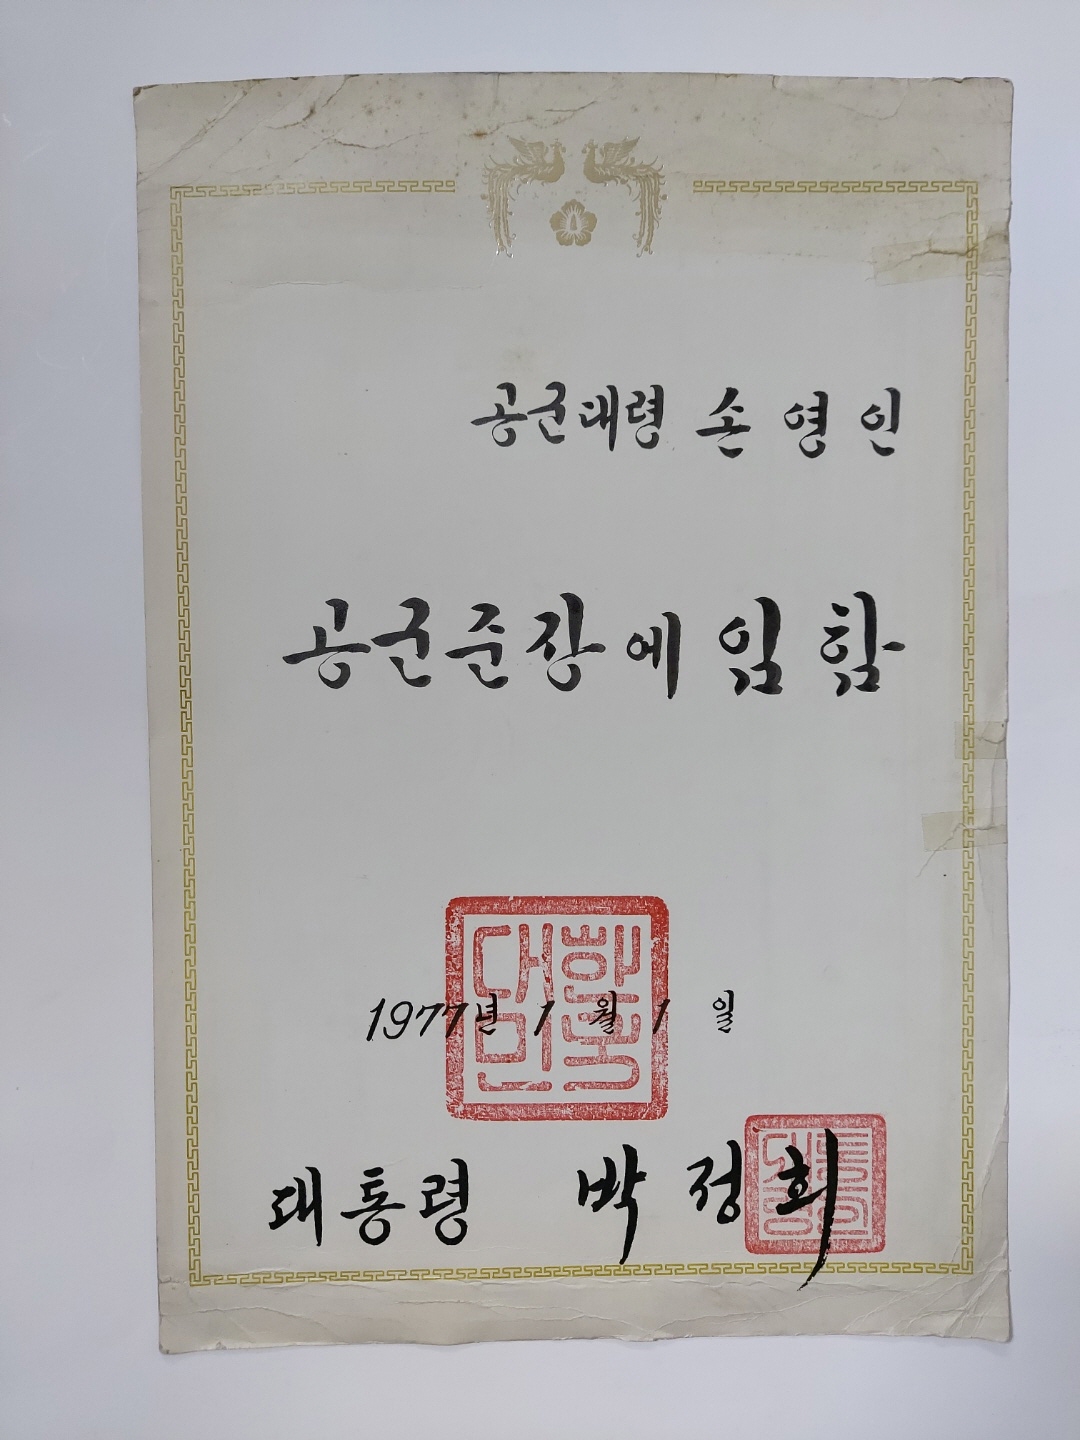 공군대령 손 영 인
공군준장에 임 함
대한민국
1977년 1 월 1 일
대통령 박 정 희